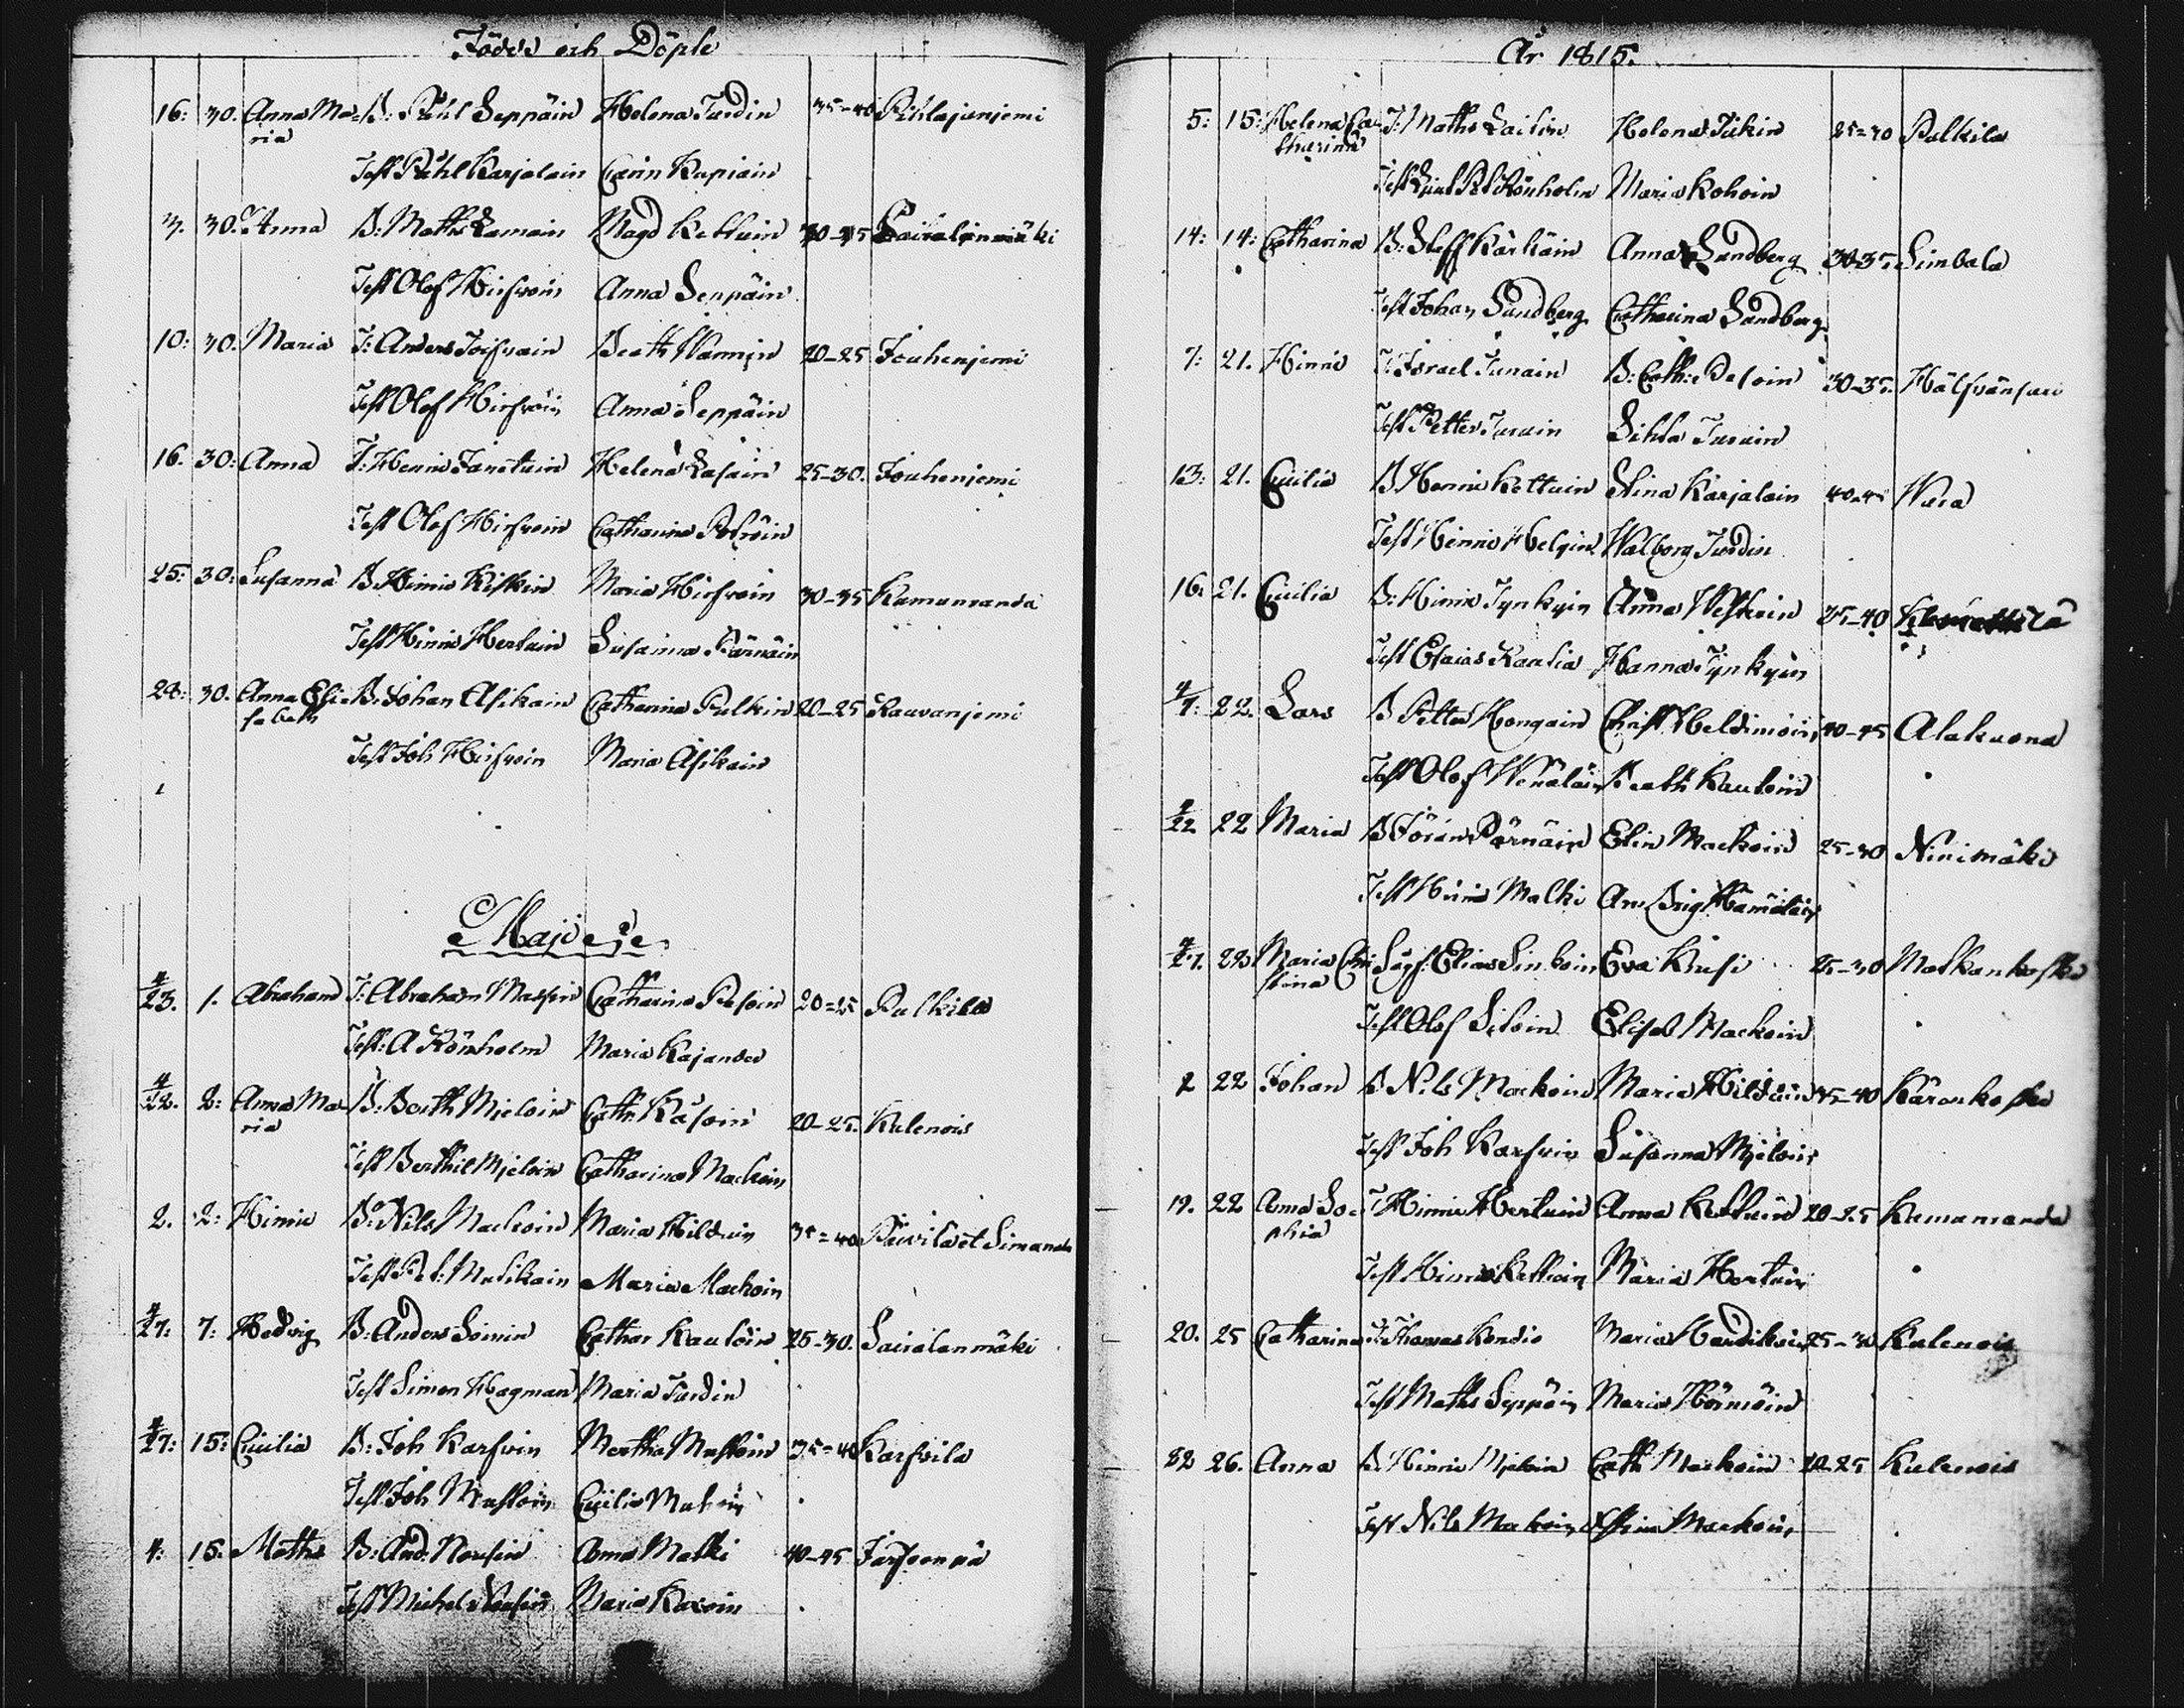 Födde och Döpte
16: 30. Anna Ma= B: Påhl Seppäin Helena Turdin 35-40 Pihlajanjemi
ria
Test Påhl Karjalain Carin Kupiain
3. 30. Anna B: Maths Lamain Magd Kettuin 30-35 Sairalanmäki
Test Olof Hirfvoin Anna Seppäin
10: 30. Maria T: Anders Toifvain Beath Wannin 20-25 Jouhenjemi
Test Olof Hirfvoin Anna Seppäin
16. 30: Anna T: Henric Helena 25-30. Jouhenjemi
Test Olof Hirfvoin Catharina
25: 30: Susanna B: Hinric Maria Hirfvoin 30-35 Kumunranda
Test Hinric Hertuin Susanna Pärnäin
24: 30. Anna Eli= B. Johan Asikain Catharina Pulkin 20-25 Rauvanjemi
sabeth
Test Joh Hirfvoin Maria Asikain
Maji
4/23. 1. Abraham T: Abraham Catharina Pesoin 20=25 Pulkila
Test: A Rönholm Maria Kajander
4/22. 2: Anna Ma= B: Berth Mieloin Cath: 20-25. Kulenois
ria
Test Berthil Mieloin Catharina Mackoin
2. 2: Hinric B: Nils Mackoin Maria Hilduin 35=40 et Simanala
Test Pet: Mustikain Maria Mackoin
4/27: 7: Hedvig B: Anders Soinin Cathar Kauloin 25-30. Sairalanmäki
Test Simon Hagman Maria Turdin
4/27: 15: Cicilia B: Joh Karfvin Martha Mustoin 35=40 Karfvila
Test Joh Mustoin Cicilia
4: 15. Maths B: And: Nousin Anna Malki 40-45 Järfvenpä
Test Michel Nousin Maria
År 1815.
5: 15: Helena Ca= T: Maths Laitin Helena Tiikin 25=30 Pulkila
tharina
Test Pet Rönholm Maria Kohoin
14: 14: Catharina B: Steff Kärkäin Anna Sandberg 30-35. Simbala
Test Johan Sandberg Catharina Sandberg
7: 21. Hinric T: Israel Turuin B: Cath: Pesoin 30-35. Hälfvänsari
Test Petter Turuin Sihla Turuin
13: 21. Cicilia B Henric Kettuin Stina Karjalain 40-45 Wara
Test Hinric Helgin Walborg Turdin
16: 21. Cicilia B: Hinric Tynkyin Anna 35-40
Test Esaias Rautia Hanna Tynkyin
4/7: 22. Lars B Petter Hongain Christ Meldimoin 40-45 Alakuona
Test Olof Wenäläin Beath Kauloin
4/22 22 Maria B Jöran Pärnäin Elin Mackoin 25-30 Ninimäki
Test Hinric Malki An: Brig Hämäläin
4/27. 22 Maria Chri Elias Simboin Eva Kusi 25-30 Matkankoski
stina
Test Olof Siloin Elisab Mackoin
2 22 Johan B Nils Mackoin Maria Hilduin 35-40 Käränkoski
Test Joh Karfvin Susanna Mieloin
19. 22 Anna So= T Hinric Hertuin Anna Kettuin 20-25 Kumunranda
phia
Test Hinric Kettuin Maria Hertuin
20. 25 Catharina T: Thomas Kondio Maria Hendikäin 25-30 Kulenois
Test Maths Seppäin Maria Hörnöin
22 26. Anna B. Hinric Mieloin Cath Mackoin 20-25 Kulenois
Test Nils Mackoin Stina Mackoin